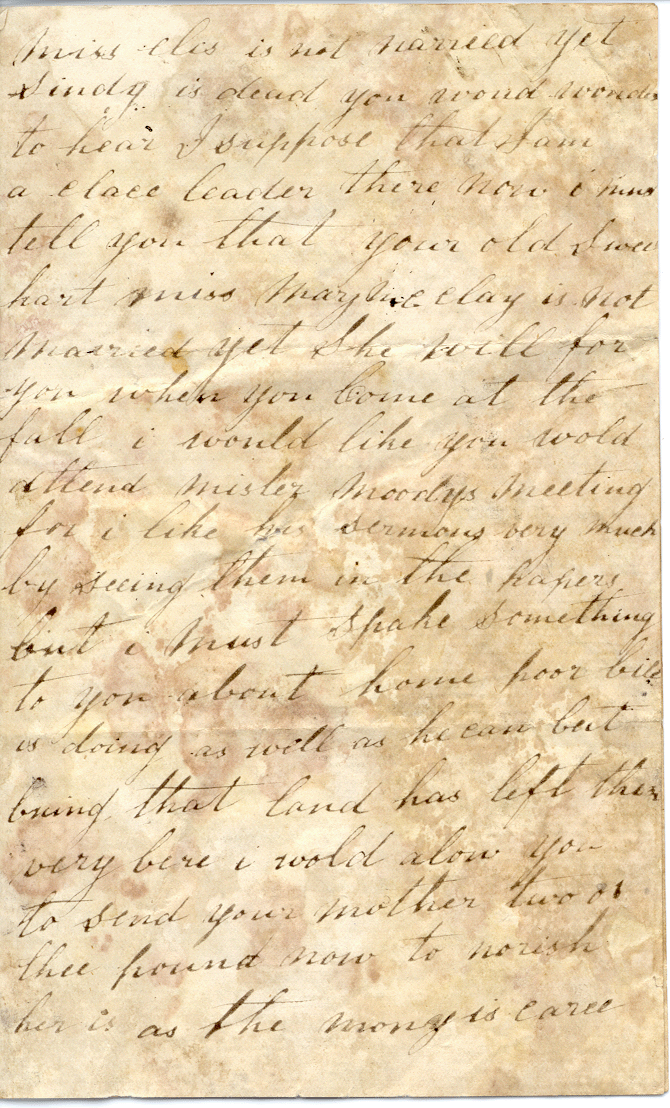 miss eles is not married yet
Sindy is dead you woud wonder
to hear I suppose that I am
a clace leader there now i must
tell you that your old Swee
hart miss mary clay is not
married yet She will for
you when you Come at the
fall i would like you wold
attend mister moodys meeting
for i like his sermons very much
by seeing them in the papers
but i must spake something
to you about home poor bill
is doing as well as he can but
buing that land has left them
very bere i wold alow you
to send your mother two or
thee pound now to norish
her as the mony is carce